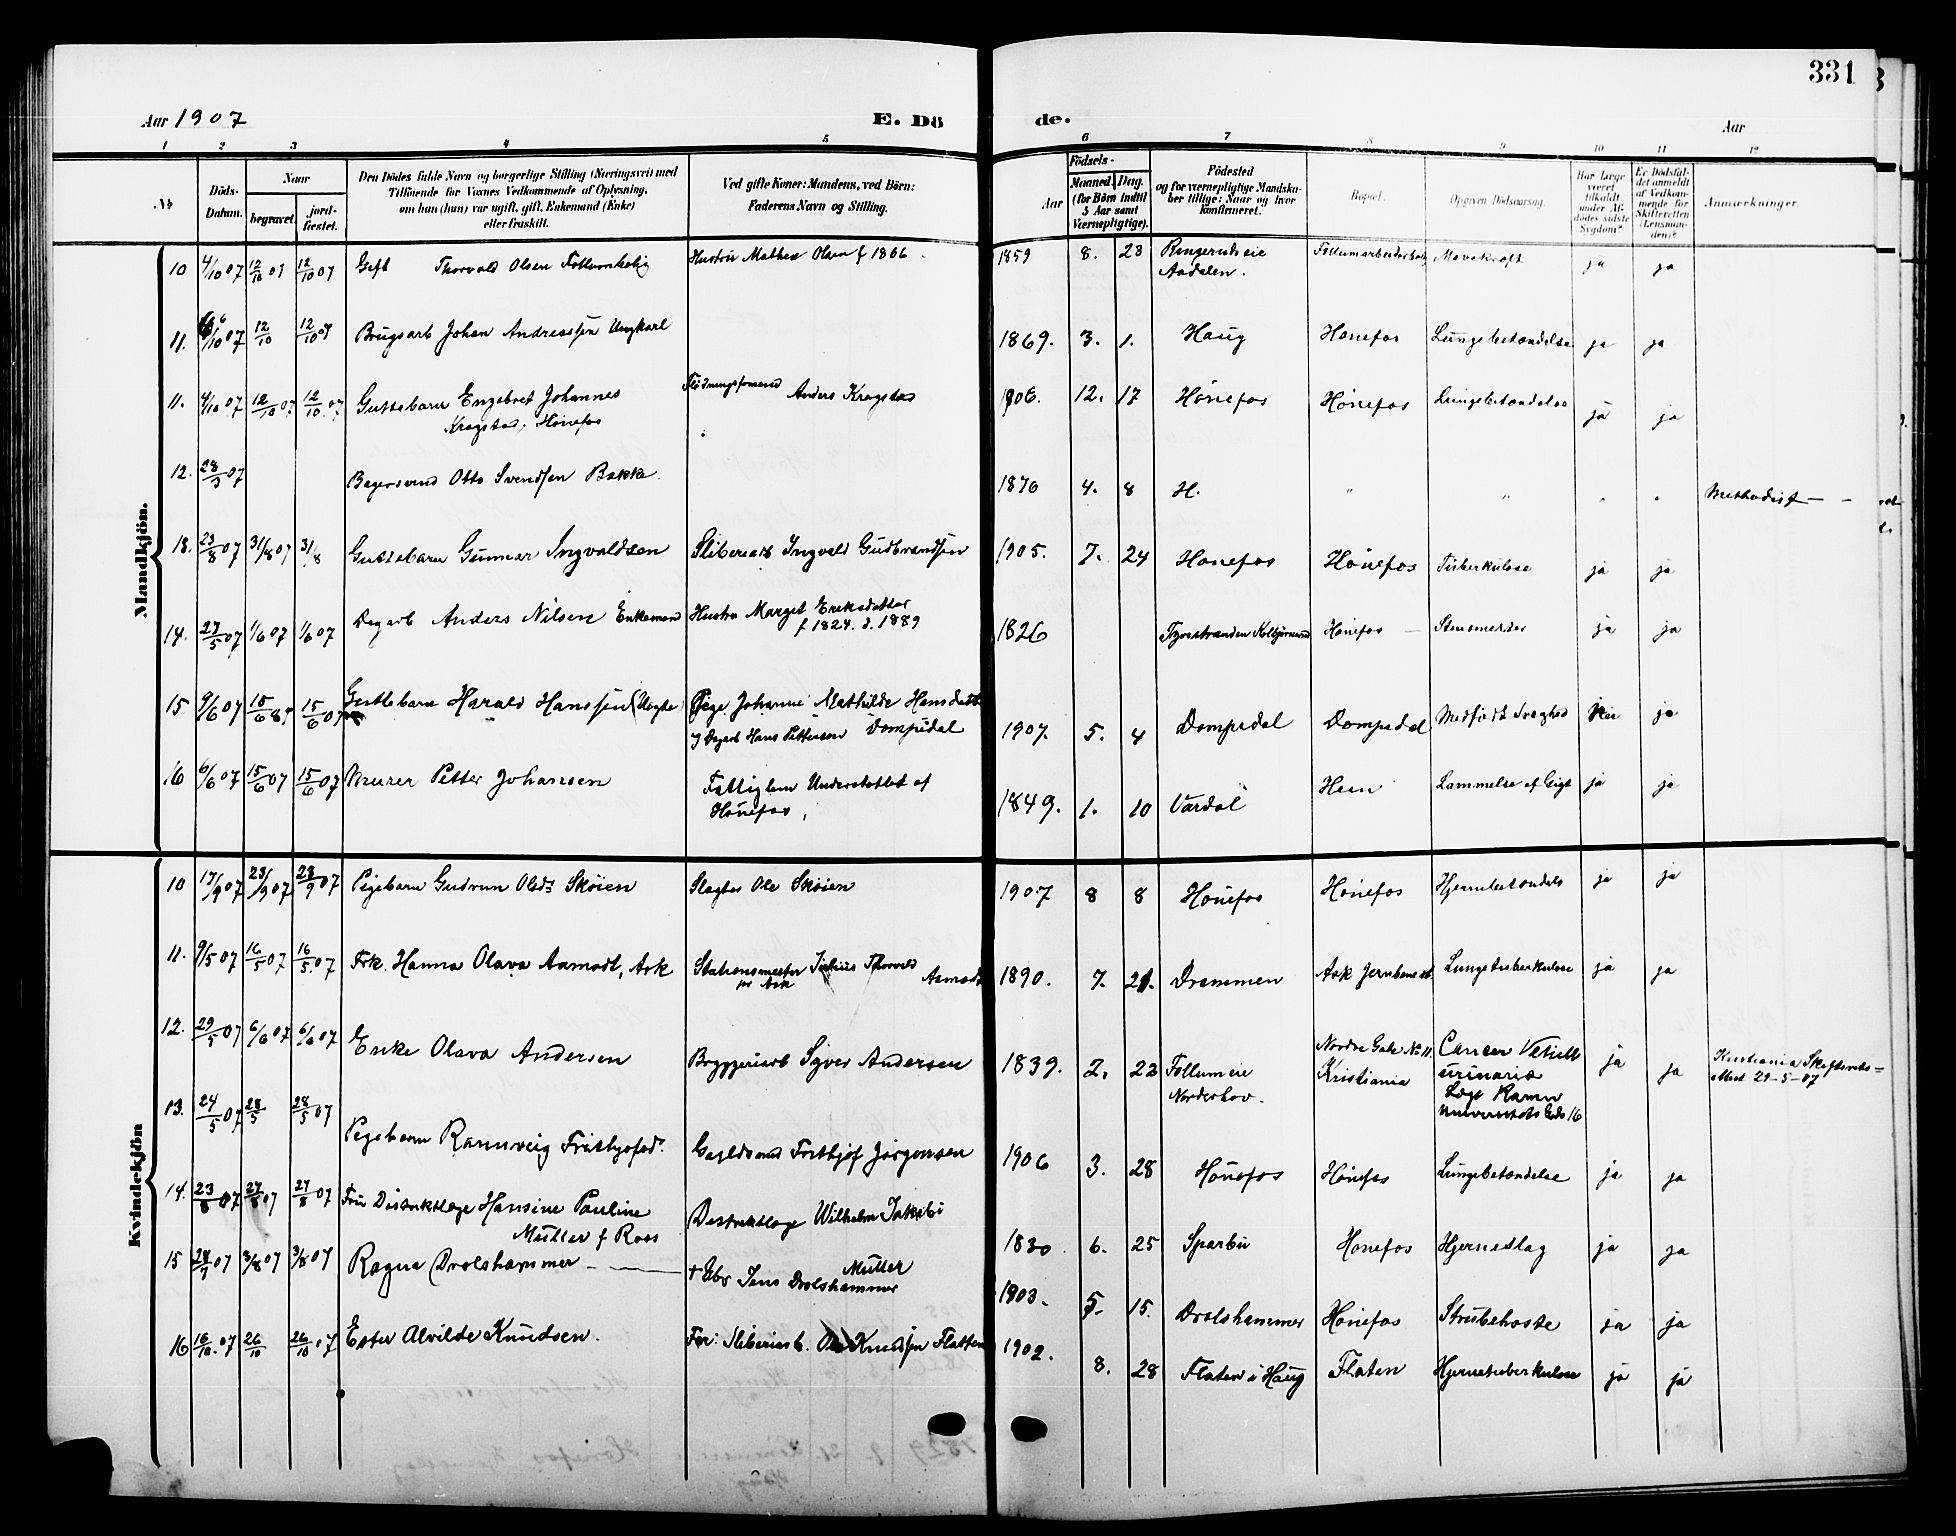 331
Aar 1907
E. Dö
de.
Aar
1 2 3 4 5 6 7 8 9 10 11 12
No
Döds-Datum.
Naar
begravet.
jord-fæstet.
Den Dödes fulde Navn og borgerlige Stilling (Næringsvei) med
Tilföiende for Voxnes Vedkommende af Oplysning,
om han (hun) var ugift, gift, Enkemand (Enke)
eller fraskilt.
Ved gifte Koner: Mandens, ved Börn:
Faderens Navn og Stilling.
Födsels-
Aar
Maaned. Dag.
(for Börn indtil
5 Aar samt
Værnepligtige).
Födested
og for værnepligtige Mandska-
ber tillige: Naar og hvor
konfirmeret.
Bopæl.
Opgiven Dödsaarsag.
Har Læge
været
tilkaldt
under Af-
dödes sidste
Sygdom?
Er Dödsfal-
det anmeldt
af Vedkom-
mende for
Skifteretten
(Lensman-
den)?
Anmærkninger.
Mandkjön.
10 4/10 07 12/10 07 12/10 07 Gift Thorvald Olsen Hustru Mathea Olsen f 1866 1859 8. 23 Ringerudseie ja ja
Aadalen.
11. 6/10 07 12/10 12/10 07 Brugsarb Johan Andreassen Ungkarl 1869. 3. 1. Haug Hönefos Lungebetændelse ja ja
11. 4/10 07 12/10 07 12/10 07 Guttebarn Engebret Johannes Flödningsformand Anders Kragstad 1906. 12. 17 Hönefos Hönefos Lungebetændelse ja ja
Kragstad, Hönefos
12. 28/3 07 Bagersvend Otto Svendsen Bakke. 1870 4. 8 H. " " " " Methodist
13. 23/8 07 31/8 07 31/8 Guttebarn Gunnar Ingvaldsen Sliberiarb Ingvald Gudbrandsen 1905. 7. 24 Hönefos Hönefos Tuberkulose ja ja
14. 27/5 07 1/6 07 1/6 07 Dagarb Anders Nilsen Enkemand Hustru Marget Eriksdatter 1826 Tyristranden Hönefos ja ja
f 1824. d. 1889
15 9/6 07 15/6 07 15/6 07 Guttebarn Harald Hanssen (Uægte) Pige Johanne Mathilde Hansdatter 1907. 5. 4 Dompidal Dompidal Medfödt Svaghed Nei ja
og Dagarb Hans Pettersen Dompidal
16 6/6 07 15/6 07 15/6 07 Murer Petter Johansen Fattiglem Understöttet af 1849. 1. 10 Vardal Heen Lammelse af Gigt ja ja
Hönefos
Kvindekjön
10 17/9 07 23/9 07 23/9 07 Pigebarn Gudrun Olsdr Skóien Slagter Ole Skóien 1907 8 8 Hönefos Hönefos Hjernebetændels ja ja
11. 9/5 07 16/5 07 16/5 07 Frk. Hanna Olava Aamodt, Ask Stationsmester Julius Thorvald Aamodt 1890. 7. 21. Drammen Ask Jernbanest. Lungetuberkulose ja ja
på Ask
12. 29/5 07 6/6 07 6/6 07 Enke Olava Andersen Bryggeriarb Syver Andersen 1839. 2. 22 Follumeie Nordre Gate No 11. Cancer Vesicæ ja ja Kristiania Skifteret
Norderhov. Kristiania urinaria 29-5-07
Læge
16
13. 24/5 07 28/5 28/5 07 Pigebarn Rannveig Frithjofsd. Frithjof Jörgensen 1906 3. 28 Hönefos Hönefos Lungebetændelse ja ja
14. 23/8 07 27/8 07 27/8 07 Fru Distriktlæge Hansine Pauline Distriktlæge Wilhelm Jakobi 1830 6. 25 Sparbu Hönefos Hjerneslag ja ja
Müller f Roos Müller
15 28/7 07 3/8 07 3/8 07 Ragna Drolshammer Jens Drolshammer 1903. 5. 15. Drolshammer Hönefos Strubehoste ja ja
16 16/10 07 26/10 26/10 07 Ester Alvilde Knudsen. Far: Sliberiarb. Ole Knudsen Flatten 1902. 8. 28 Flaten i Haug Flaten Hjernetuberkulose ja ja